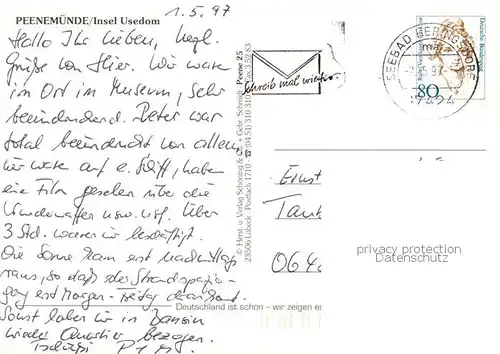 1.5.97
PEENEMÜNDE/Insel Usedom
Hallo Ihr Lieben, herzl.
Grüße von Hier. Wir waren
im Ort im Museum, sehr
beeindruckend. Peter war
total beeindruckt von allem,
wir waren auf e. Schiff, haben
ein Film gesehen über die
Wunderwaffen usw. usf. Über
3 Std. waren wir beschäftigt.
Die Sonne kam erst nachmittags
raus, so daß der Strandspazier-
gang erst Morgen - Freitag dran
Sonst haben wir in Bansin
wieder Quartier bezogen.
Tschüßi P
© Herst. u. Verlag Schöning & Co + Gebr. Schmidt Peene 25
23506 Lübeck Postfach 1710
Deutschland ist schön – wir zeigen es
Schreib mal wieder
SEEBAD HERINGSDORF
97
17424
Deutsche Bundespost
80
Ernst
Tank
06
privacy protection
Datenschutz